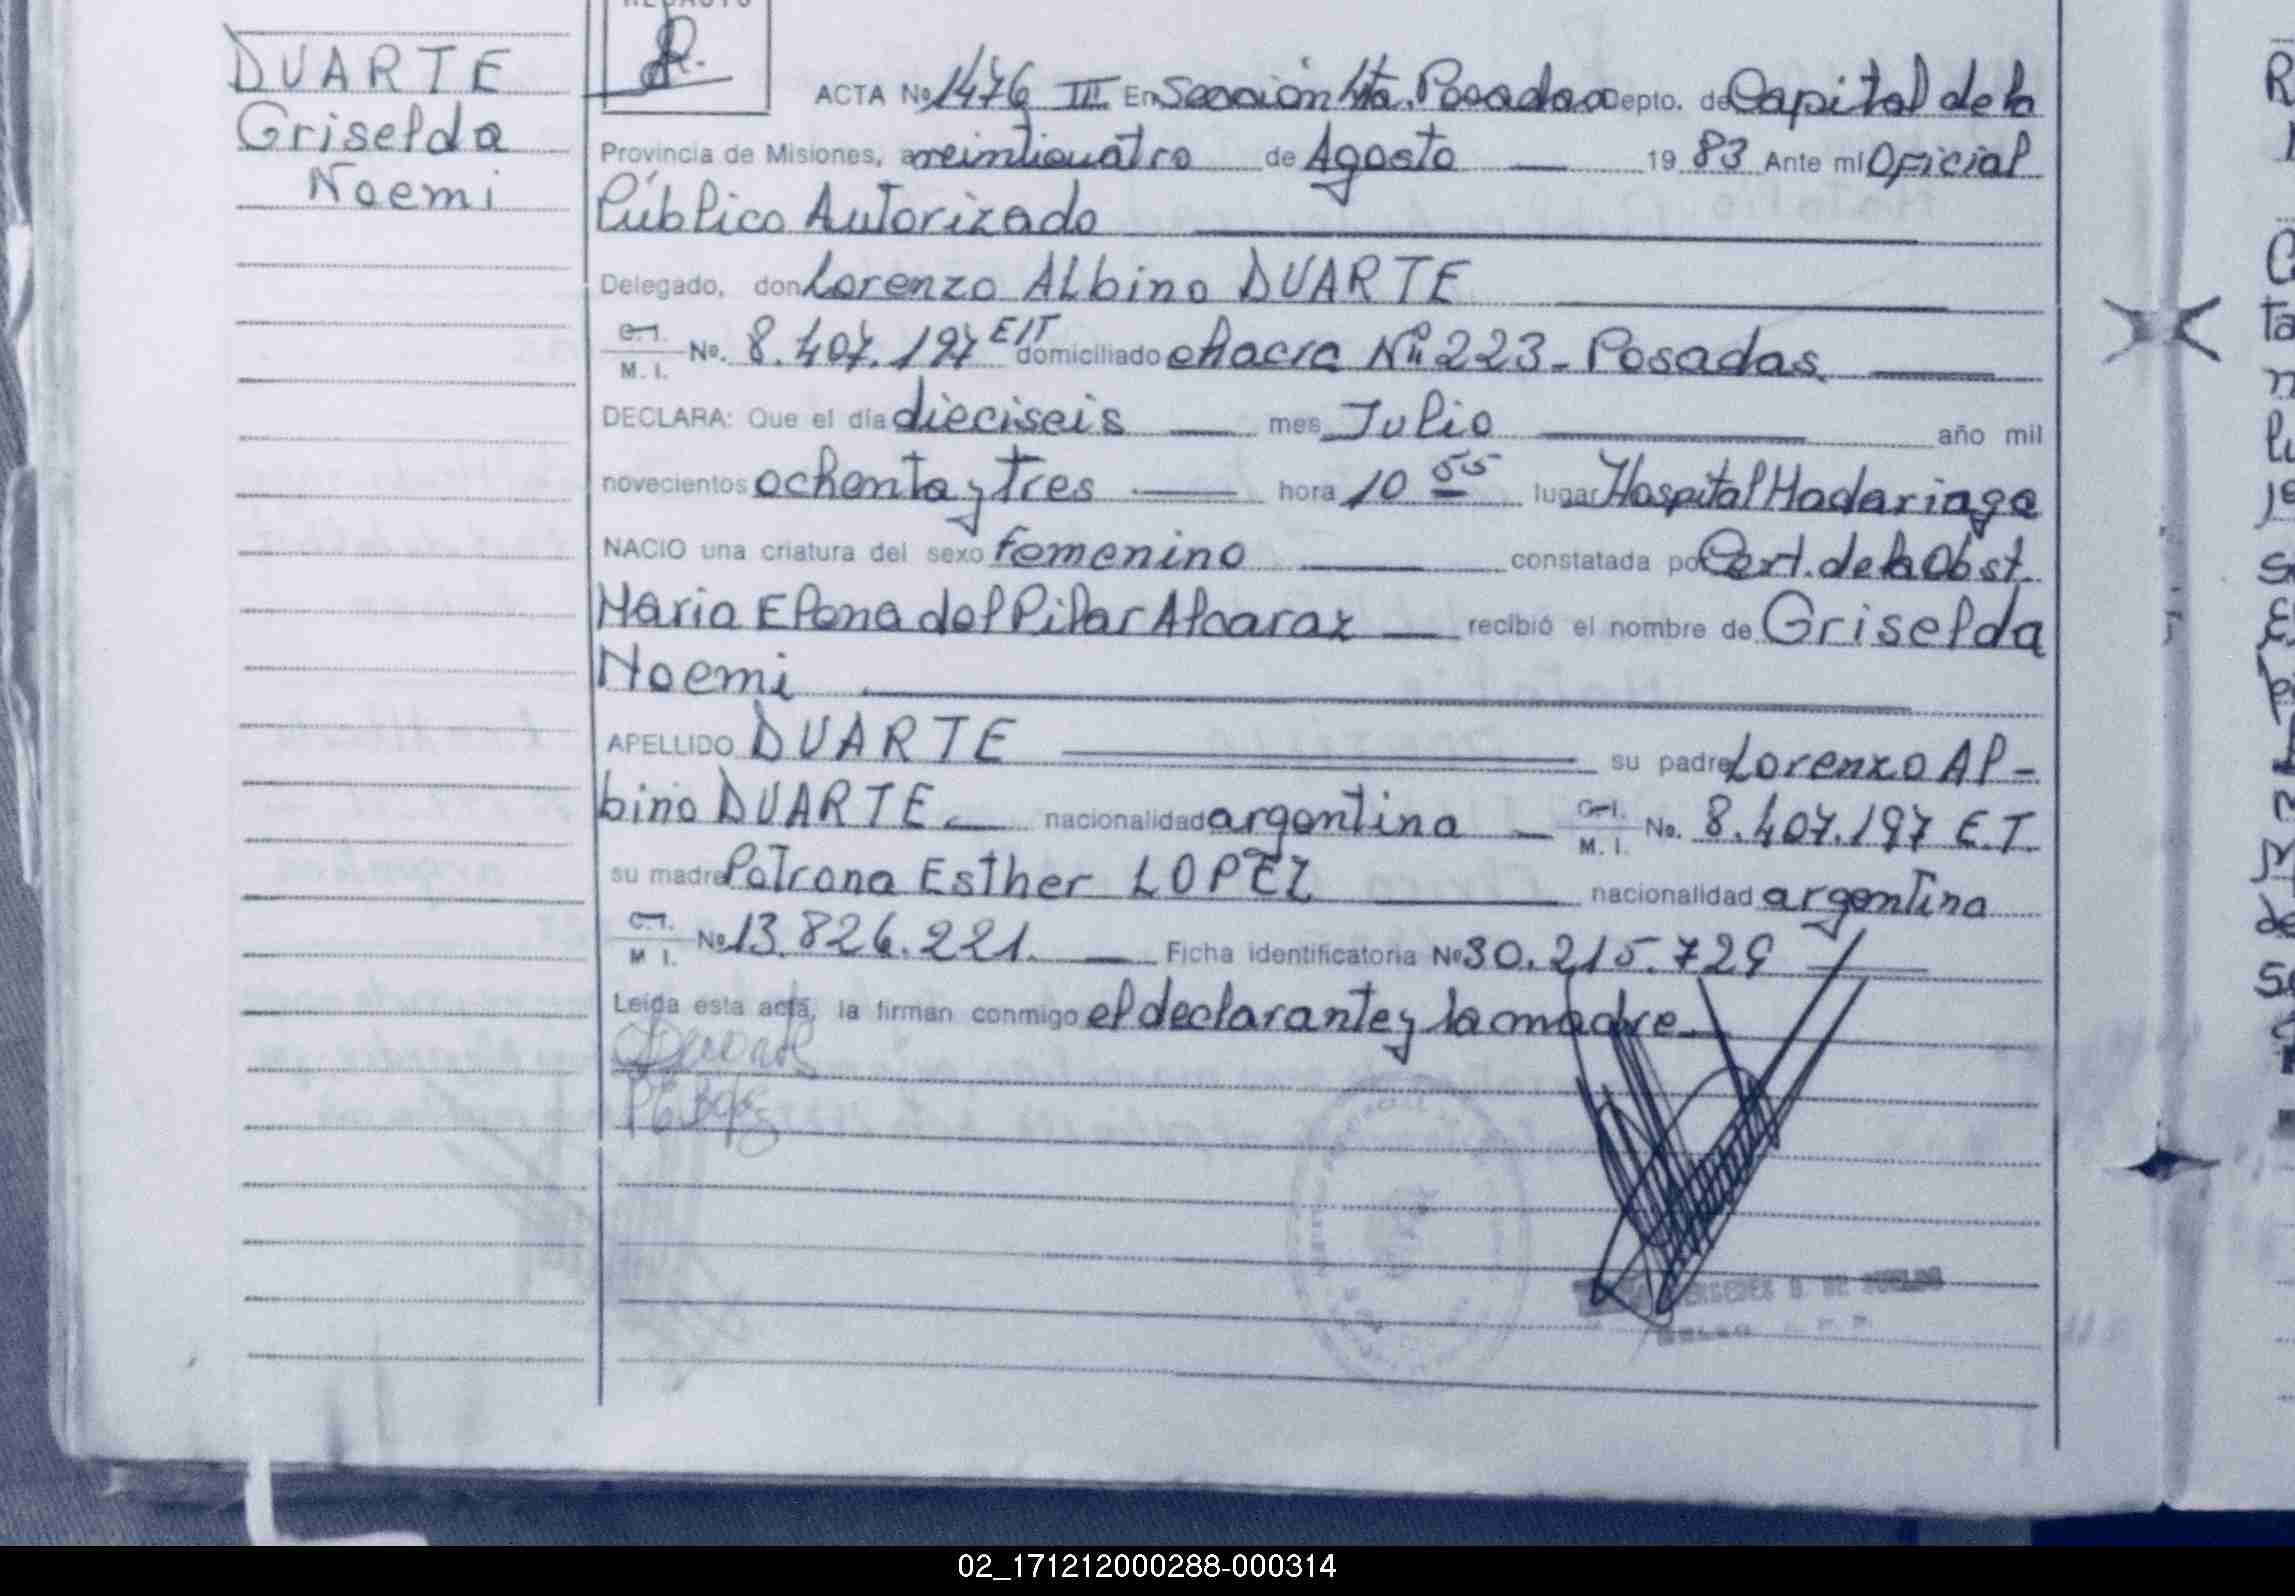 DUARTE
Griselda
Noemi
ACTA Nº 1476 III En Sección 4ta. Posadas Depto. de Capital de la
Provincia de Misiones, a veinticuatro de Agosto 1983 Ante mi Oficial
Público Autorizado
Delegado, don Lorenzo Albino DUARTE
C.I. M.I. No. 8.407.197 E/T domiciliado chacra Nº 223- Posadas.
DECLARA: Que el día dieciseis mes Julio año mil
novecientos ochenta y tres hora 10 55 lugar Hospital Madariaga
NACIO una criatura del sexo femenino constatada por Cert. de la Obst.
Maria Elena del Pilar Alcaraz recibió el nombre de Griselda
Noemi
APELLIDO DUARTE su padre Lorenzo Al-
bino DUARTE nacionalidad argentina C.I. M.I. No. 8.407.197 E.T.
su madre Petrona Esther LOPEZ nacionalidad argentina
C.I. M.I. Nº 13.826.221. Ficha identificatoria Nº 30.215.729
Leída esta acta, la firman conmigo el declarante y la madre
02_171212000288-000314